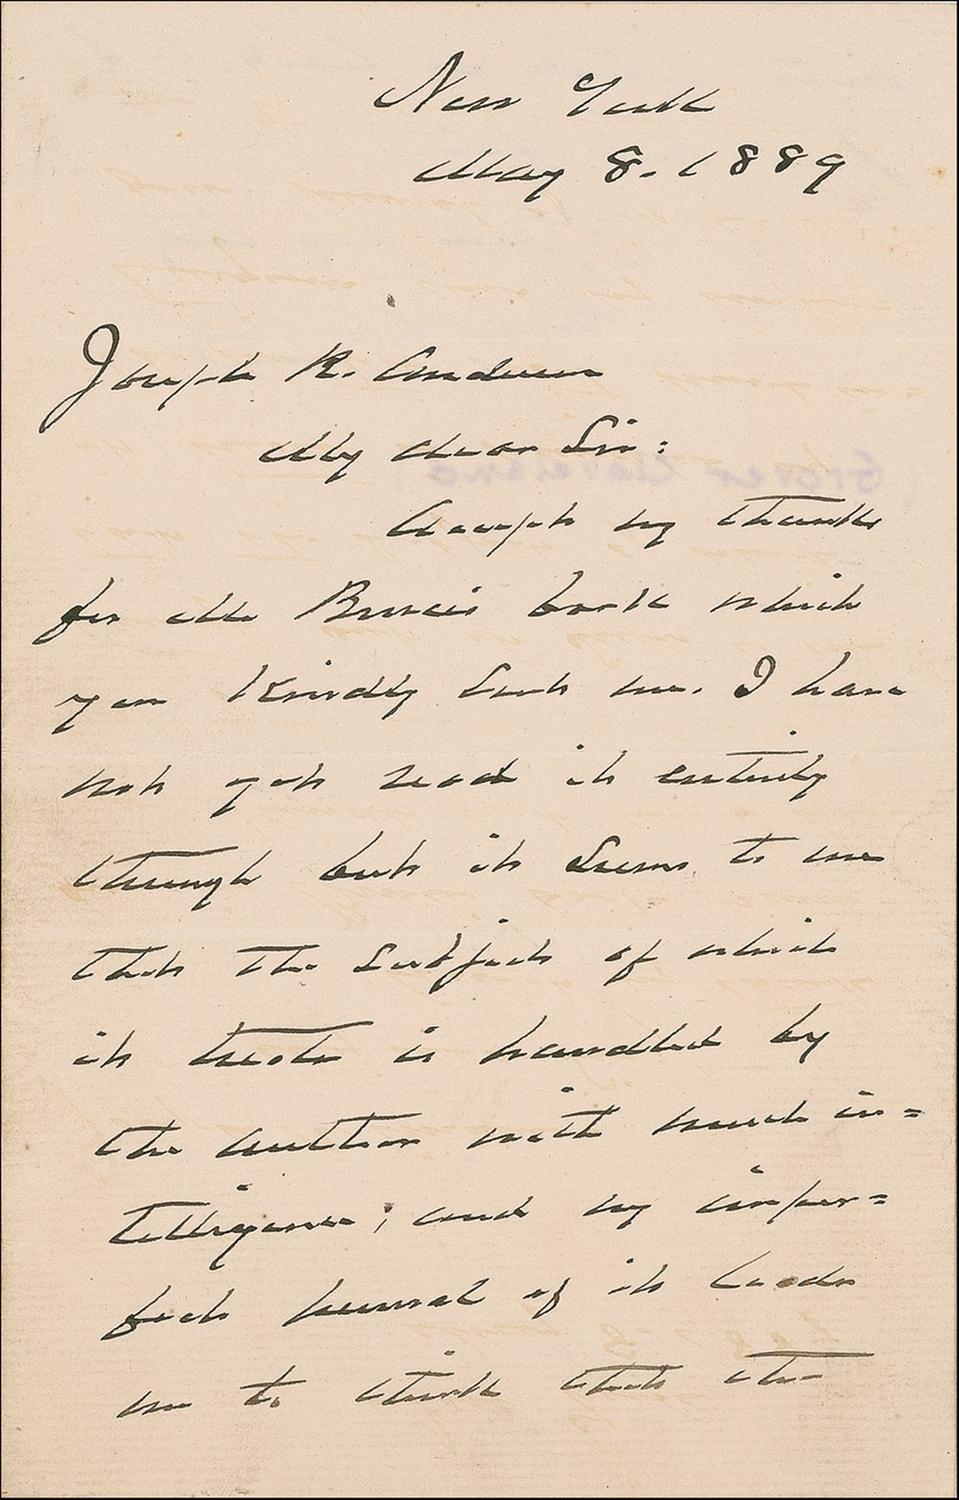 New York
May 8. 1889
Joseph R. Anderson
My dear Sir:
Accept my thanks
for the Bruce's book which
you kindly sent me. I have
not yet read it entirely
through but it seems to me
that the subject of which
it treats is handled by
the author with much in=
telligence; and my imper=
fect perusal of it leads
me to think that the
(Grover Cleveland)